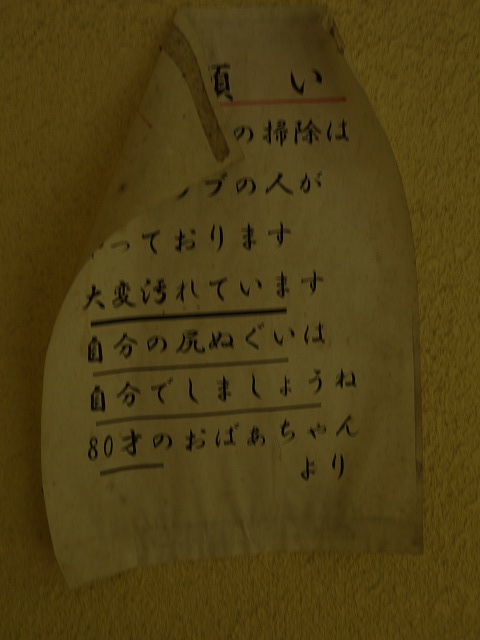 願い
の掃除は
ブの人が
っております
大変汚れています
自分の尻ぬぐいは
自分でしましょうね
80才のおばあちゃん
より